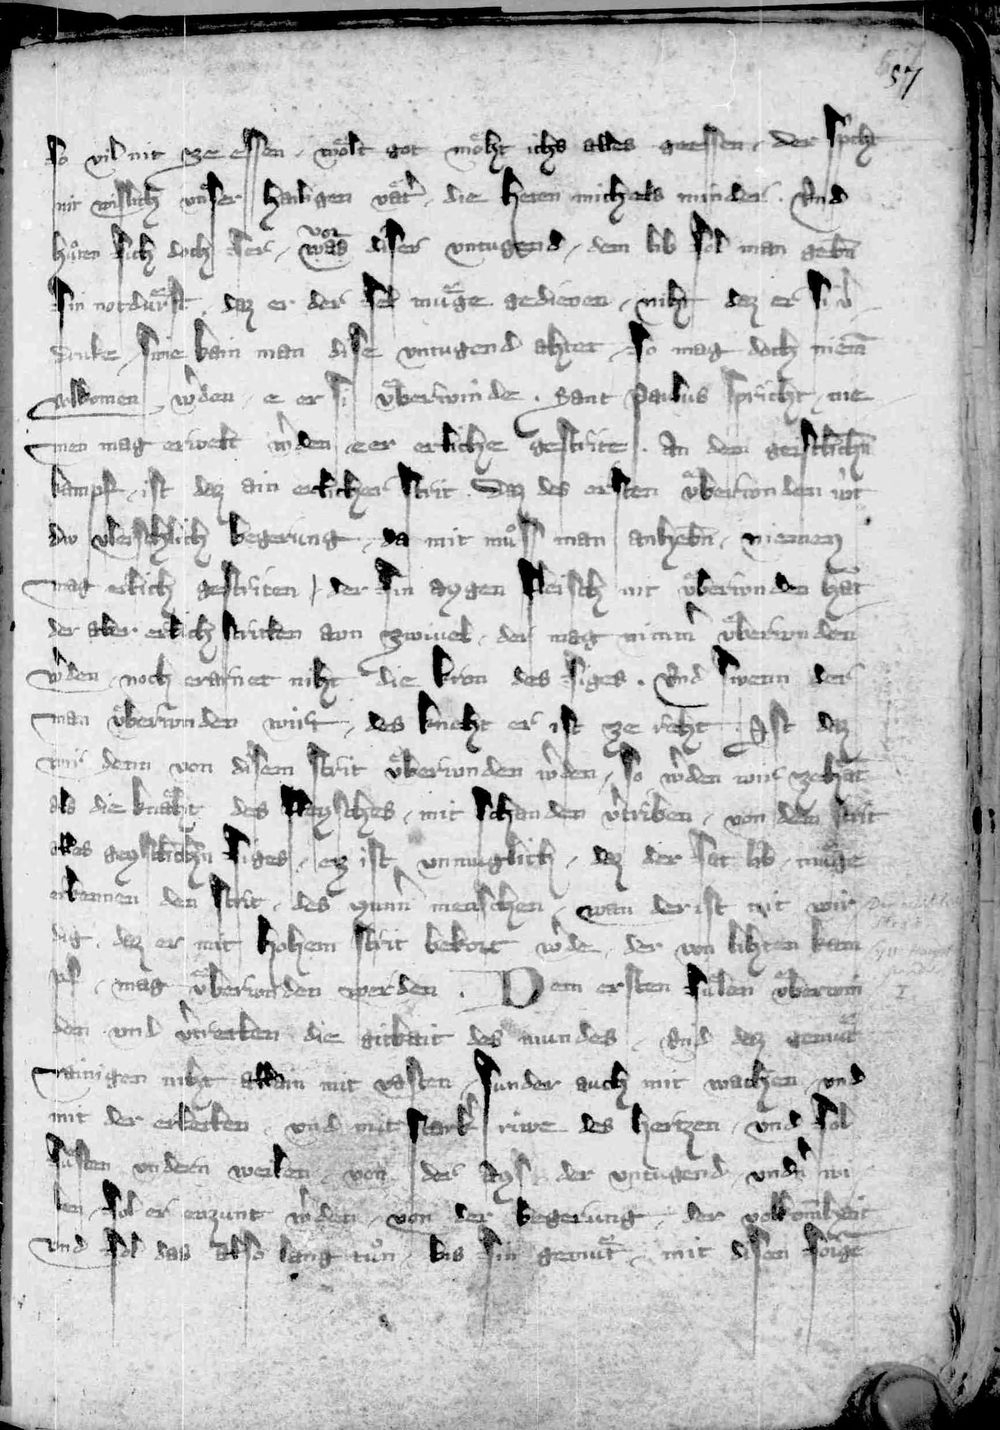 57
so vil nit ze essen · woͤlt got moͤht ichs alles geessen · der spͥcht
nit wislich unser hailigen vaͤtͤ · die heten michels minder · Und
huͤten sich doch ser · vor was diser untugend · dem lib sol man gebn̄
sin notdurft · daz er der sel muͤge gedienen · niht daz er si vͤ
druke · swie klain man dise untugend ahtet · so mag doch niem̄
volkomen wͤden · e er si uͤberwinde · Sant Paulus spricht · nie
men mag erwelt wͤden · e er erliche gestrite · An dem geistlichn̄
kampf · ist daz ain erlicher strit · Daz des ersten uͤberwunden wͤt
diu vleischlich begerung · da mit muͦss man anhebn̄ · niemen
mag erlich gestriten · der sin aygen fleisch nit uͤberwunden hat
der aber erlich striten aun zwivel · der mag nimmͤ uͤberwunden
wͤden · noch erarnet niht die kron des siges · Und swenn der
man uͤberwunden wirt · des kneht er ist ze reht · Ist daz
wir denn von disem strit uͤberwunden wͤden · so wͤden wir zehāt
als die knaͤht des fleysches · mit schanden vͤtriben · von dem strit
alles geystlichn̄ siges · ez ist unmuglich · daz der sat lib · muͤge
erkennen den strit · des ynnͤn menschen · wan der ist nit wir
dig · daz er mit hohem strit bekort wͤde · der von lihten kam
pf · mag uͤberwunden werden · Dem ersten fuͤlen uͤberwin
den · und vͤtreiben die gitkait des mundes · Und daz gemuͤt
rainigen niht allain mit vasten · sunder auch mit wachen · und
mit der · und mit starkͤ riwe des hertzen · Und sol
suͤften underen weilen · von der ays der untugend · undͤ wi
len · sol er enzunt wͤden · von der begerung · der volkom̄hait
und sol das also lang tuͦn · bis sin gemuͤt · mit disen sorgē